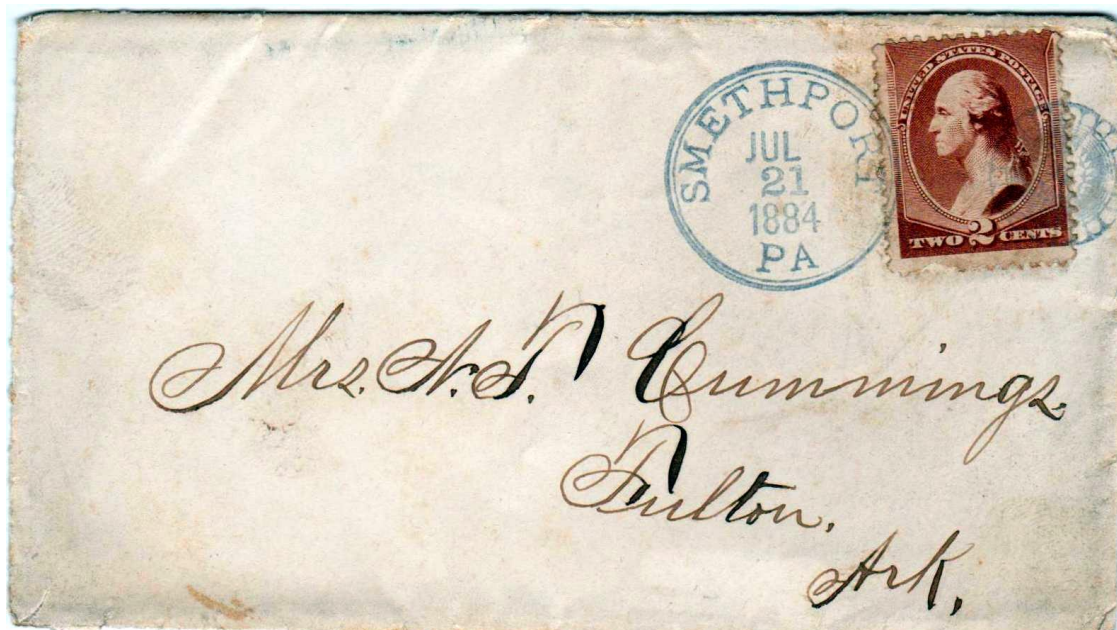 SMETHPORT
JUL
21
1884
PA
UNITED STATES POSTAGE
TWO 2 CENTS
Mrs. N. T. Cummings
Fulton,
Ark.